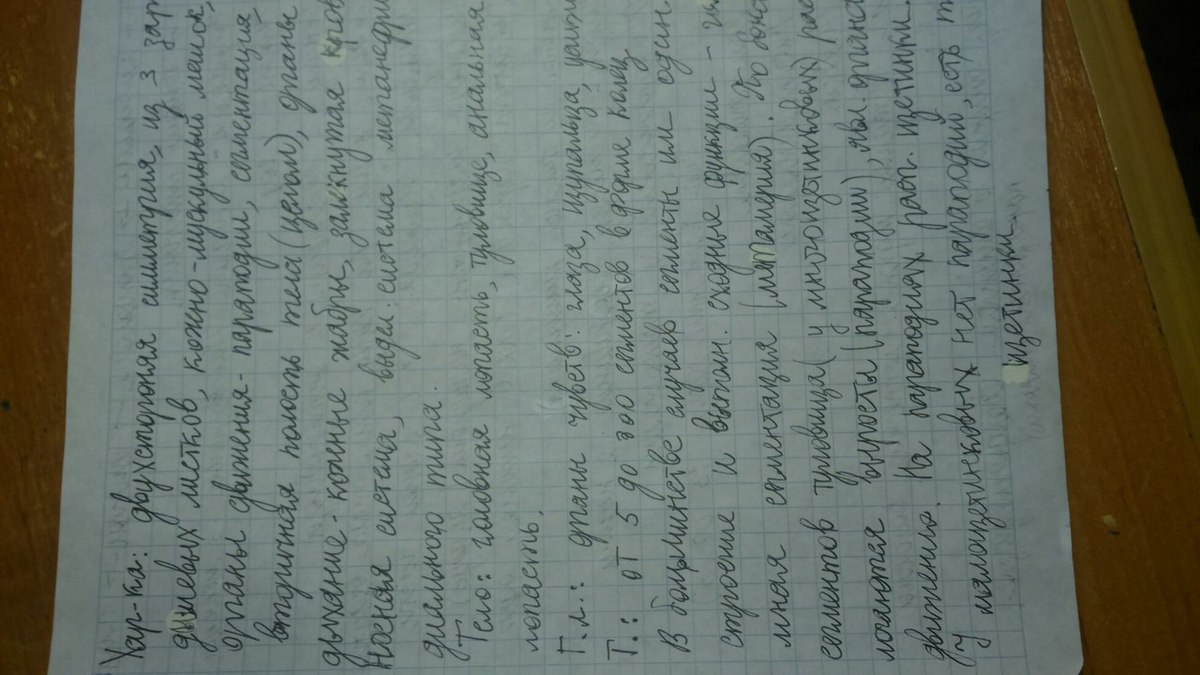 Хар-ка: двухсторонняя симметрия, из 3 зар
дышевых листков, кожно-мускульный мешок,
органы движения - параподии, сегментация,
вторичная полость тела (целом), органы
дыхание - кожные жабры, замкнутая кров
носная система, выдел. система метанефри
диального типа.
Тело: головная лопасть, туловище, анальная
лопасть.
Г.л.: органы чувств: глаза, щупальца, усики
Т.: от 5 до 800 сегментов в форме колец
В большинстве случаев сегменты им. один.
строение и выполн. сходные функции -
мная сегментация (метамерия). По бока
сегментов туловища (у многощетинковых) рас
лопастая выросты (параподии), явл. органа
движения. На параподиях расп. щетинки.
(у малощетинковых нет параподий, есть т
щетинки.